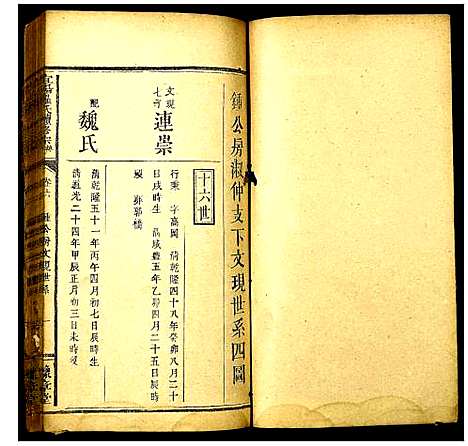 鍾公房淑仲支下文現世系四圖
十六世
文現
七子
連崇
行東 字高岡 清乾隆四十八年癸卯八月二十
日戌時生 清咸豐五年乙卯四月二十五日辰時
歿 葬郭橋
配
魏氏
清乾隆五十一年丙午四月初七日辰時生
清道光二十四年甲辰正月初三日未時歿
卷六
鍾公房文現世系